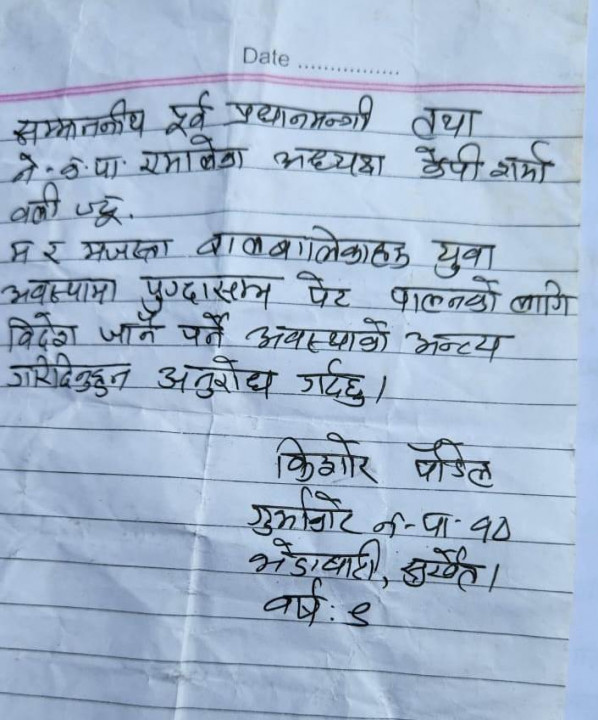 Date ...............
सम्माननीय पूर्व प्रधानमन्त्री तथा
ने.क.पा. एमालेका अध्यक्ष केपी शर्मा
वली ज्यू.
म र मजस्ता बालबालिकाहरु युवा
अवस्थामा पुग्दासम्म पेट पालनको लागि
विदेश जानै पर्ने अवस्थाको अन्त्य
गरिदिनुहुन अनुरोध गर्दछु।
किशोर पौडेल
गुर्भाकोट न.पा. १०
भेडाघारी, सुर्खेत।
वर्ष: ९